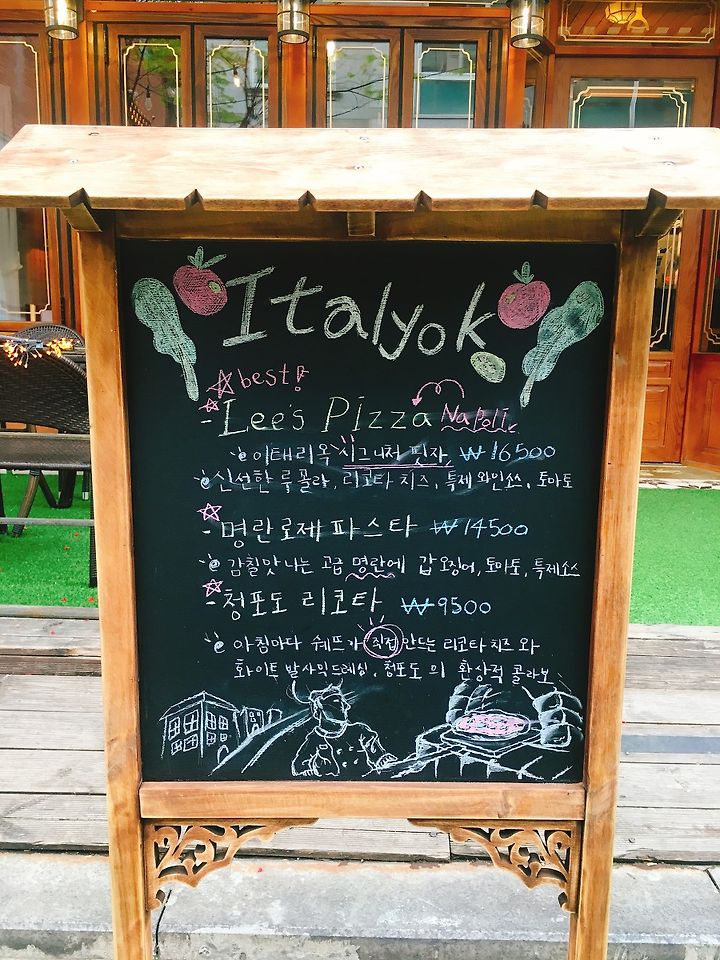 Italyok
best!
- Lee's Pizza Napoli
이태리옥 시그니처 핏자, ₩16500
신선한 루꼴라, 리코타 치즈, 특제 와인소스, 토마토
- 명란로제파스타 ₩14500
감칠맛 나는 고급 명란에 갑오징어, 토마토, 특제소스
- 청포도 리코타 ₩9500
아침마다 쉐프가 직접 만드는 리코타치즈 와
화이트 발사믹드레싱, 청포도 의 환상적 콜라보